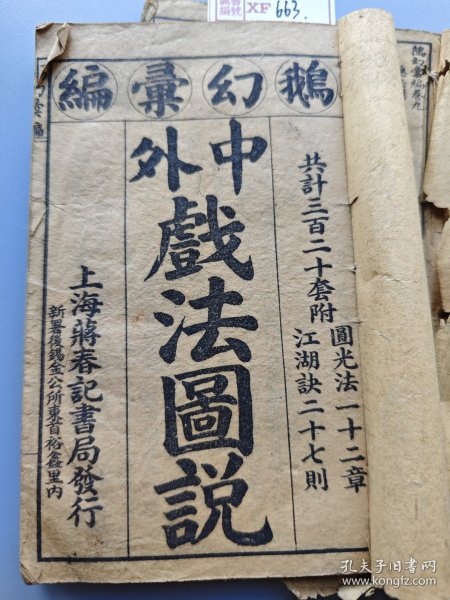 XF 663.
鵝幻彙編
共計三百二十套附
圓光法一十二章
江湖訣二十七則
中外
戲法圖說
上海蔣春記書局發行
新署後錫金公所東首裕鑫里内
孔夫子旧书网
www.kongfz.com